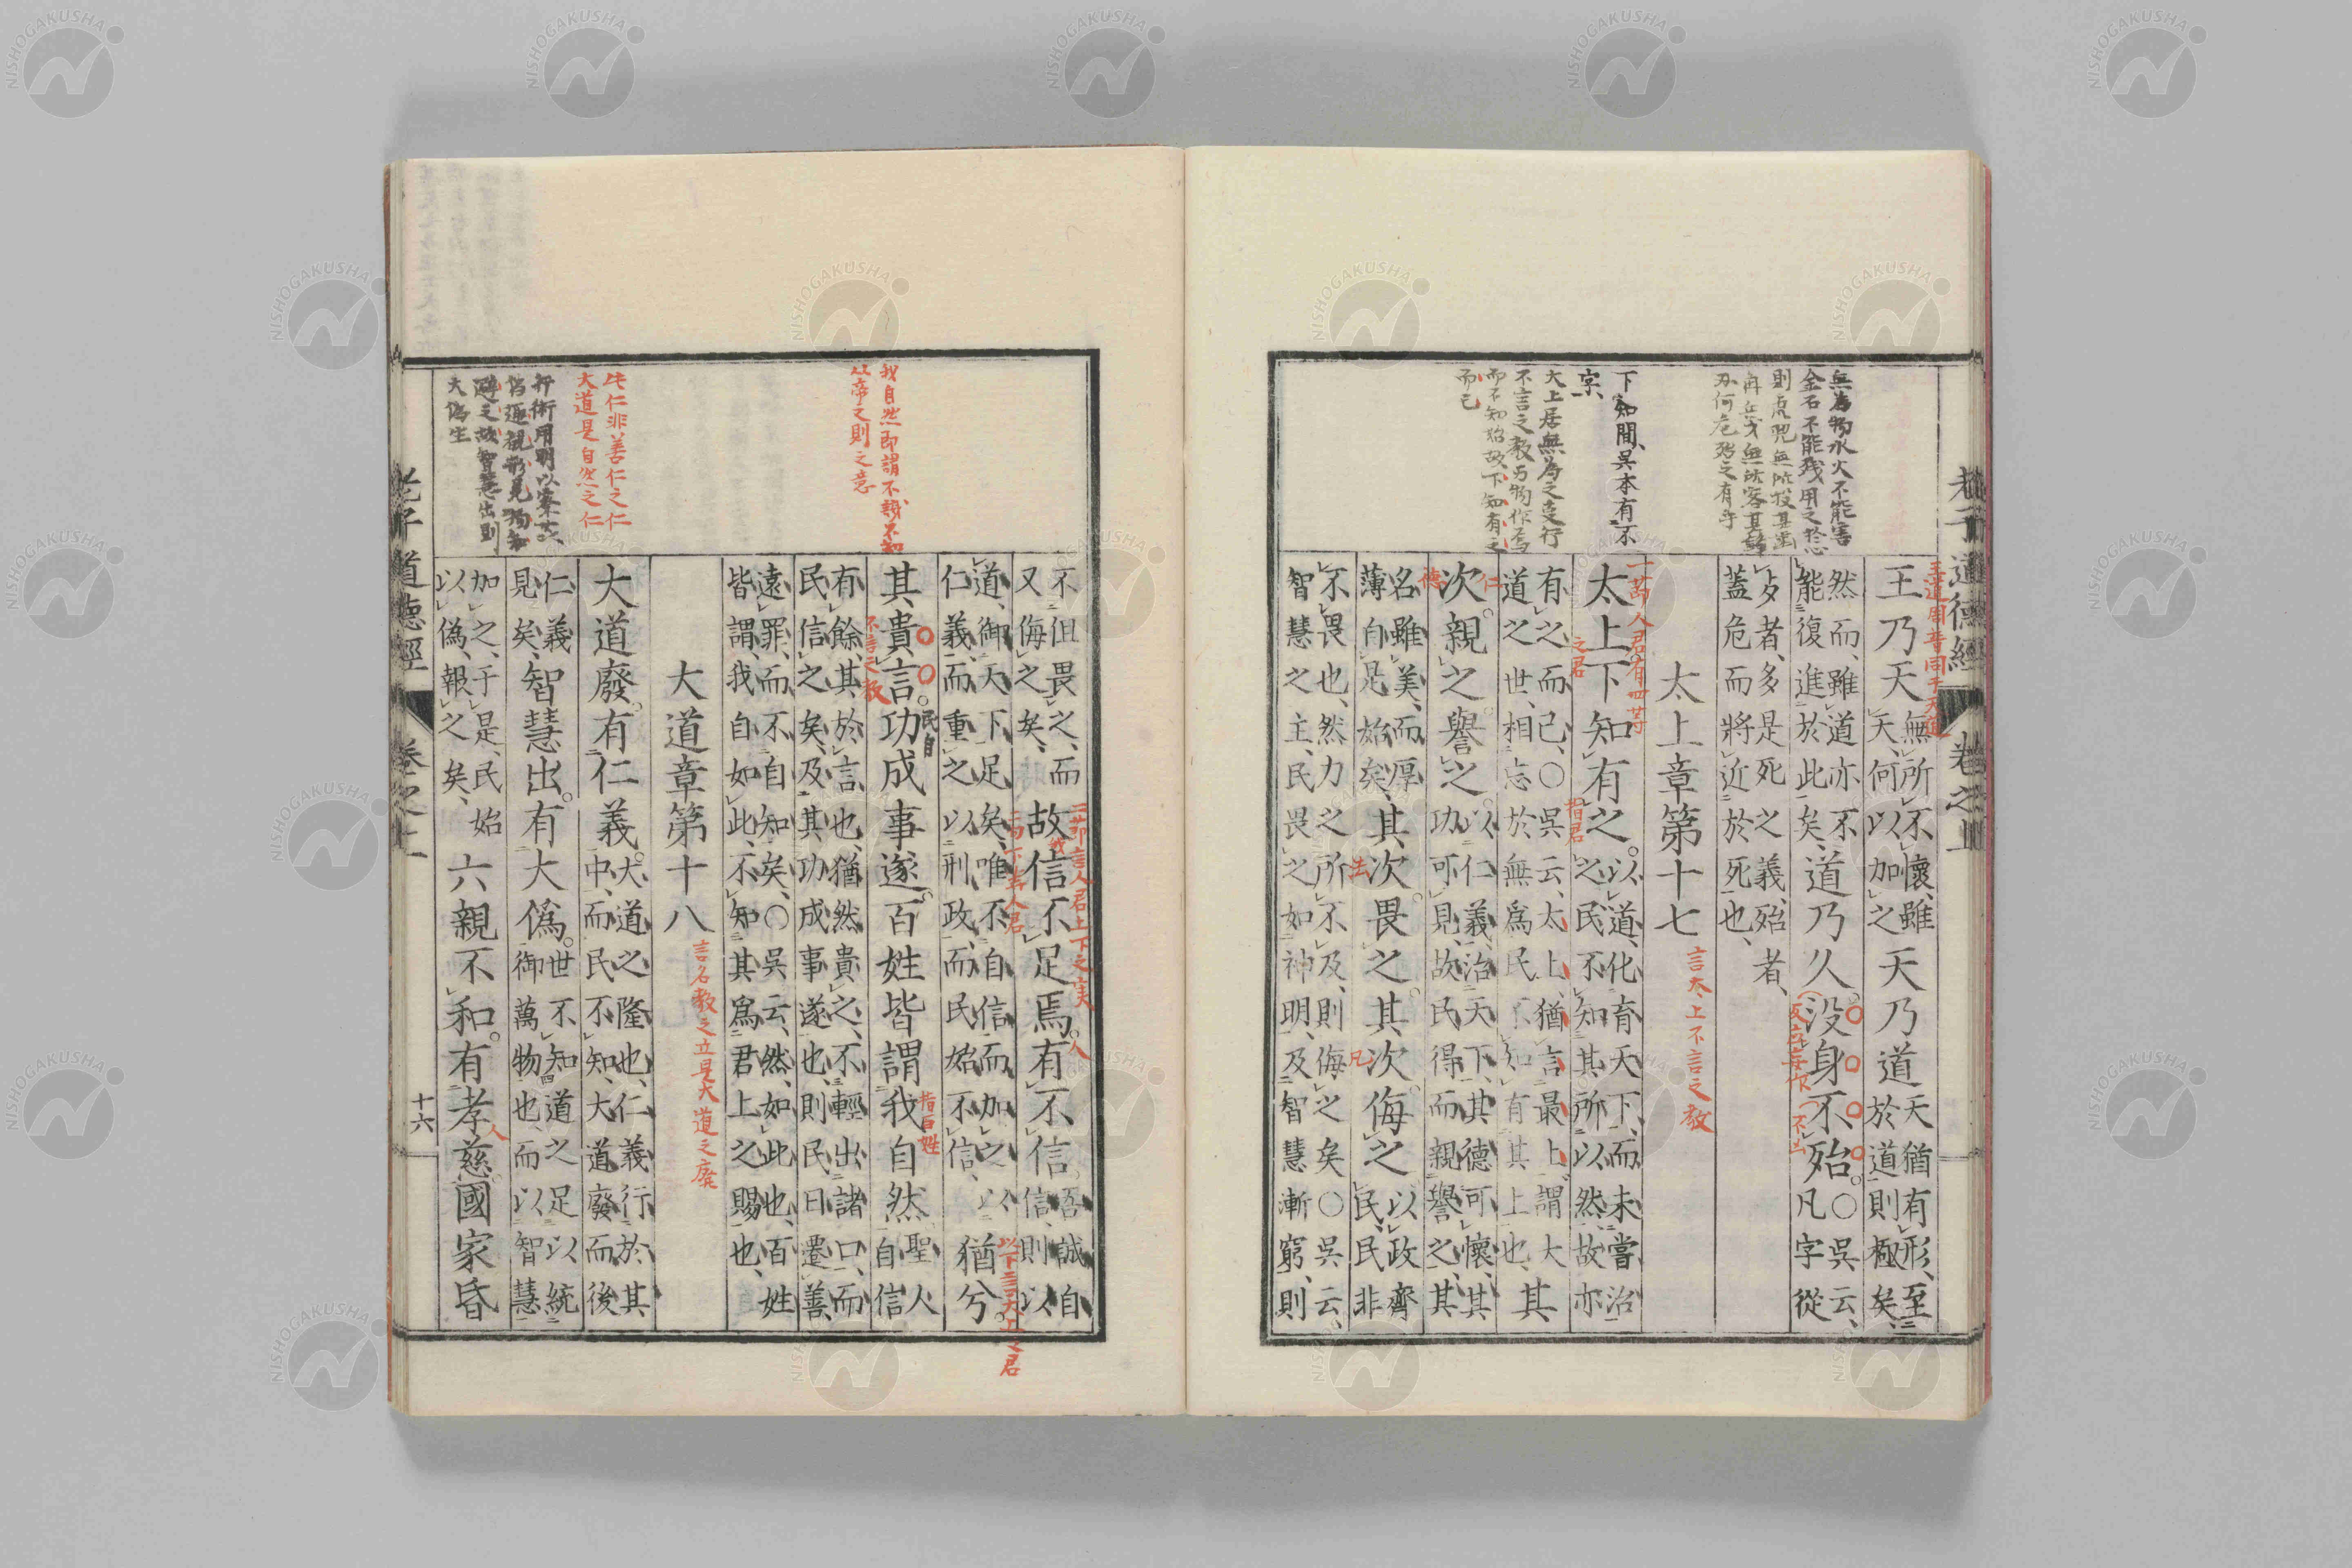 老子道德經 卷之上
無為物永火不能害
金石不能殘用之於心
則虎兕無所投其齒
角兵戈無所容其鋒
刃何危殆之有乎
下知間、吳本有不
字、
大上居無為之事行
不言之教萬物作焉
而不知始故下知有之
而已
王道周普同于天道
王乃天無所不懷、雖
天、何以加之天乃道天猶有形、至
於道則極矣、
然而、雖道亦不
能復進於此矣、道乃久。没身不殆。○吳云、
凡字從
歹者、多是死之義、殆者、
蓋危而將近於死也、
太上章第十七
言太上不言之教
一節人君有四等
之君
指君
太上下知有之。以道、化育天下、而未嘗治
之民不知其所以然、故亦
有之而已、○吳云、太上、猶言最上、謂大
道之世、相忘於無爲民不知有其上也、其
仁
德
次。親之譽之。以仁義、治天下、其德可懷、其
功可見、故民得而親譽之、其
名雖美、而厚
薄自是始矣、其次。畏之。其次侮之以政齊
民、民非
法
凡
不畏也、然力之所不及、則侮之矣○吳云、
智慧之主、民畏之如神明、及智慧漸窮、則
我自然即謂不識不知
從帝之則之意
此仁非善仁之仁
大道是自然之仁
大僞生
不但畏之、而
又侮之矣、故信不足焉。有不信吾誠自
信、則以
人
道、御天下足矣、唯不自信、而加之以
仁義、而重之以刑政、而民始不信、猶兮。
以下言大上之君
其貴言。功成事遂。百姓皆謂我自然聖人
自信
不言之教
民自
指百姓
有餘、其於言也、猶然貴之、不輕出諸口、而
民信之矣、及其功成事遂也、則民日遷善、
遠罪、而不自知矣、○吳云、然、如此也、百姓
皆謂、我自如此、不知其爲君上之賜也、
大道章第十八
言名教之立是大道之廢
大道廢。有仁義。大道之隆也、仁義行於其
中、而民不知、大道廢而後
仁義
見矣、智慧出。有大僞。世不知道之足以統
御萬物也、而以智慧
加之、于是、民始
以僞、報之矣、六親不和。有孝慈。國家昏
人
老子道德經 卷之上 十六